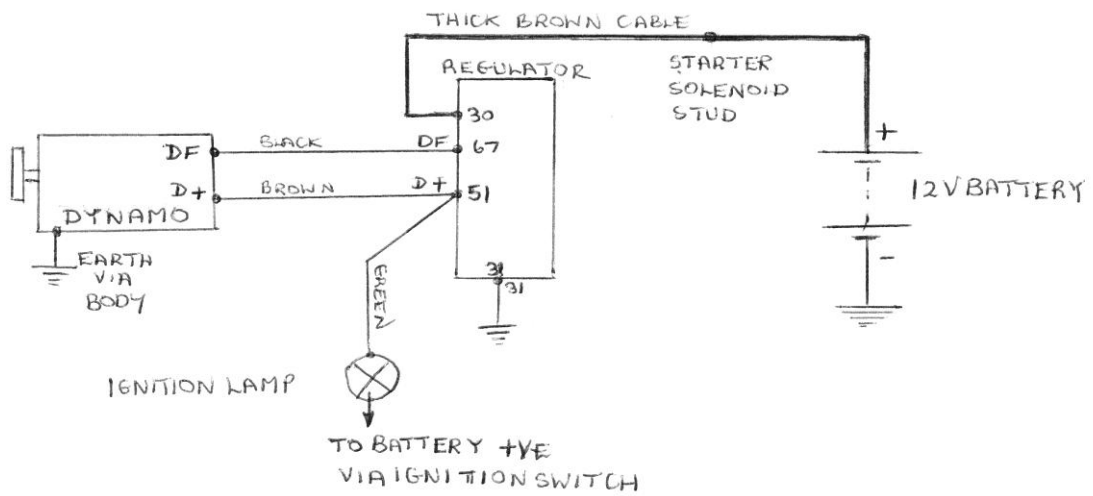 THICK BROWN CABLE
REGULATOR
STARTER
SOLENOID
STUD
30
DF
BLACK
DF
67
D+
BROWN
D+
51
DYNAMO
EARTH
VIA
BODY
GREEN
31
31
+
12V BATTERY
-
IGNITION LAMP
TO BATTERY +VE
VIA IGNITION SWITCH